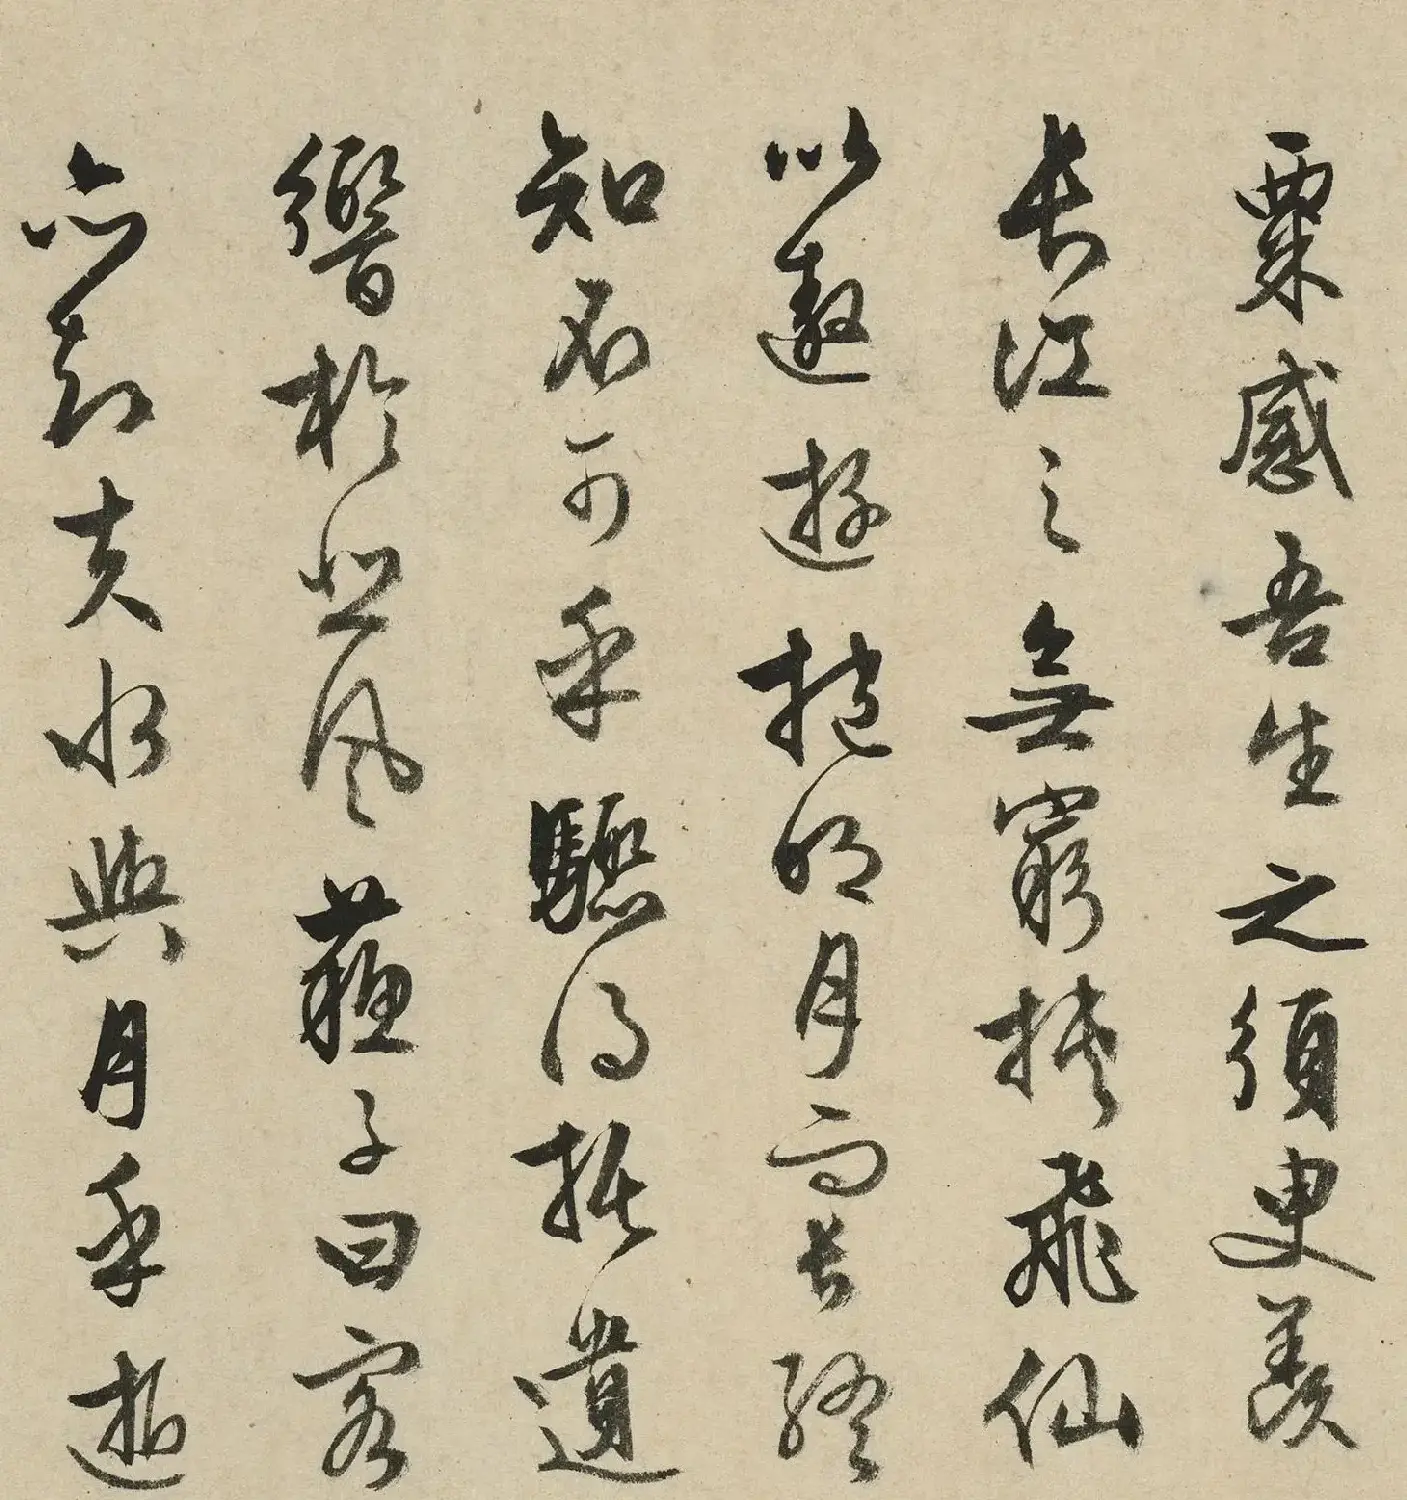 粟感吾生之須臾羨
長江之無窮挾飛仙
以遨遊抱明月而長終
知不可乎驟得托遺
響於悲風蘇子曰客
亦知夫水與月乎逝